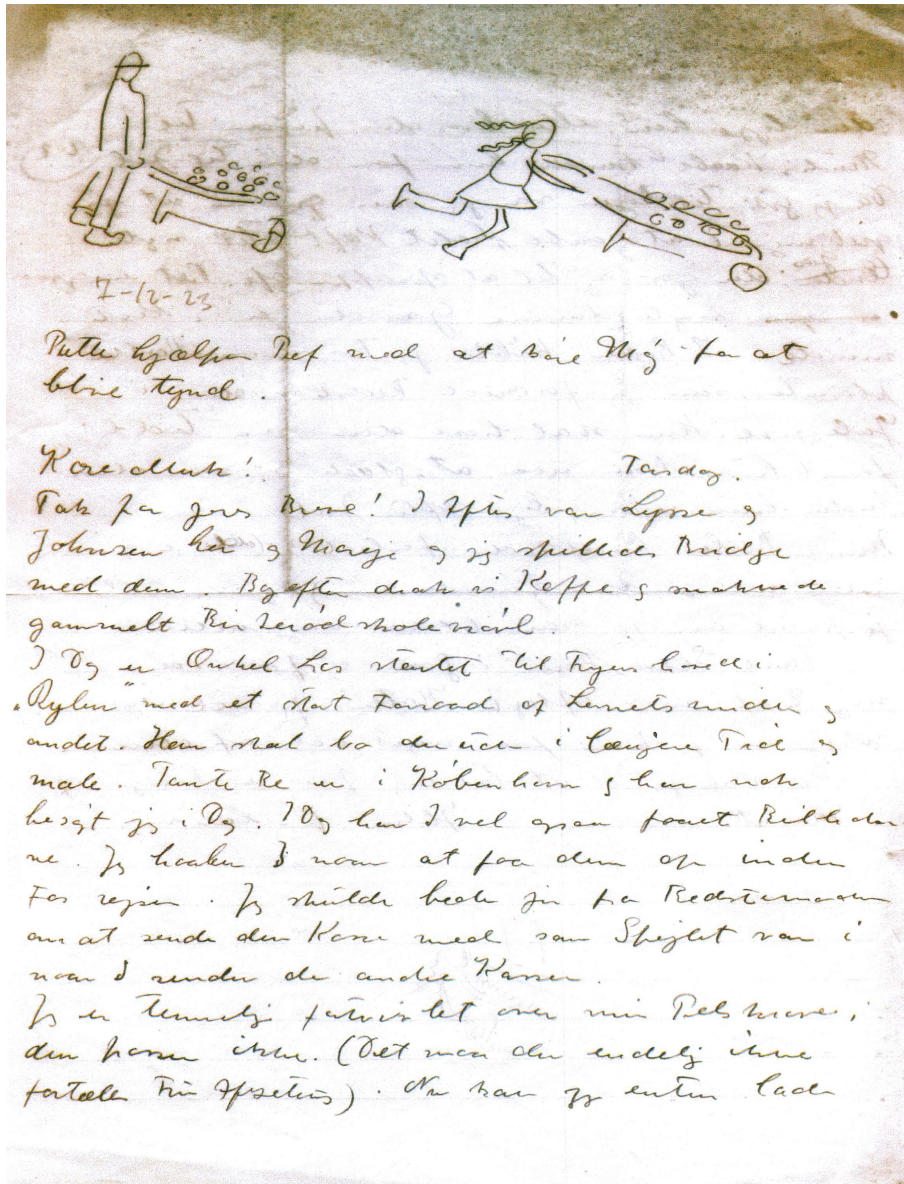 7-12-23
Putte hjælper Bef med at böre Møg for at
blive tynd.
Kære Muk! Torsdag.
Tak for jeres Breve! I Aftes var Lysse og
Johnsen her og Manse og jeg spillede Bridge
med dem. Bagefter drak vi Kaffe og snakkede
gammelt Birkerød skole
I Dag er Onkel Las startet til Fyens hoved i
„Rylen” med et stort Forraad af Lærreds og
andet. Han skal bo derude i længere Tid og
male. Tante Be er i København og har nok
besøgt jer i Dag. I Dag har I vel ogsaa faaet Billeder
ne. Jeg haaber I naar at faa dem op inden
Far rejser. Jeg skulde bede jer fra Bedstemoder
om at sende den Kasse med som Spejlet var i
naar I sender de andre Kasser.
Jeg er temmelig fortvivlet over min Pelskrave;
den passer ikke. (Det maa du endelig ikke
fortælle Frk ). Nu kan jeg enten lade